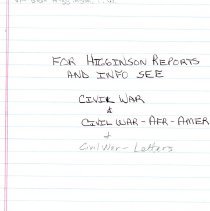 FOR HIGGINSON REPORTS
AND INFO SEE
CIVIL WAR
&
CIVIL WAR - AFR-AMER
&
Civil War - Letters